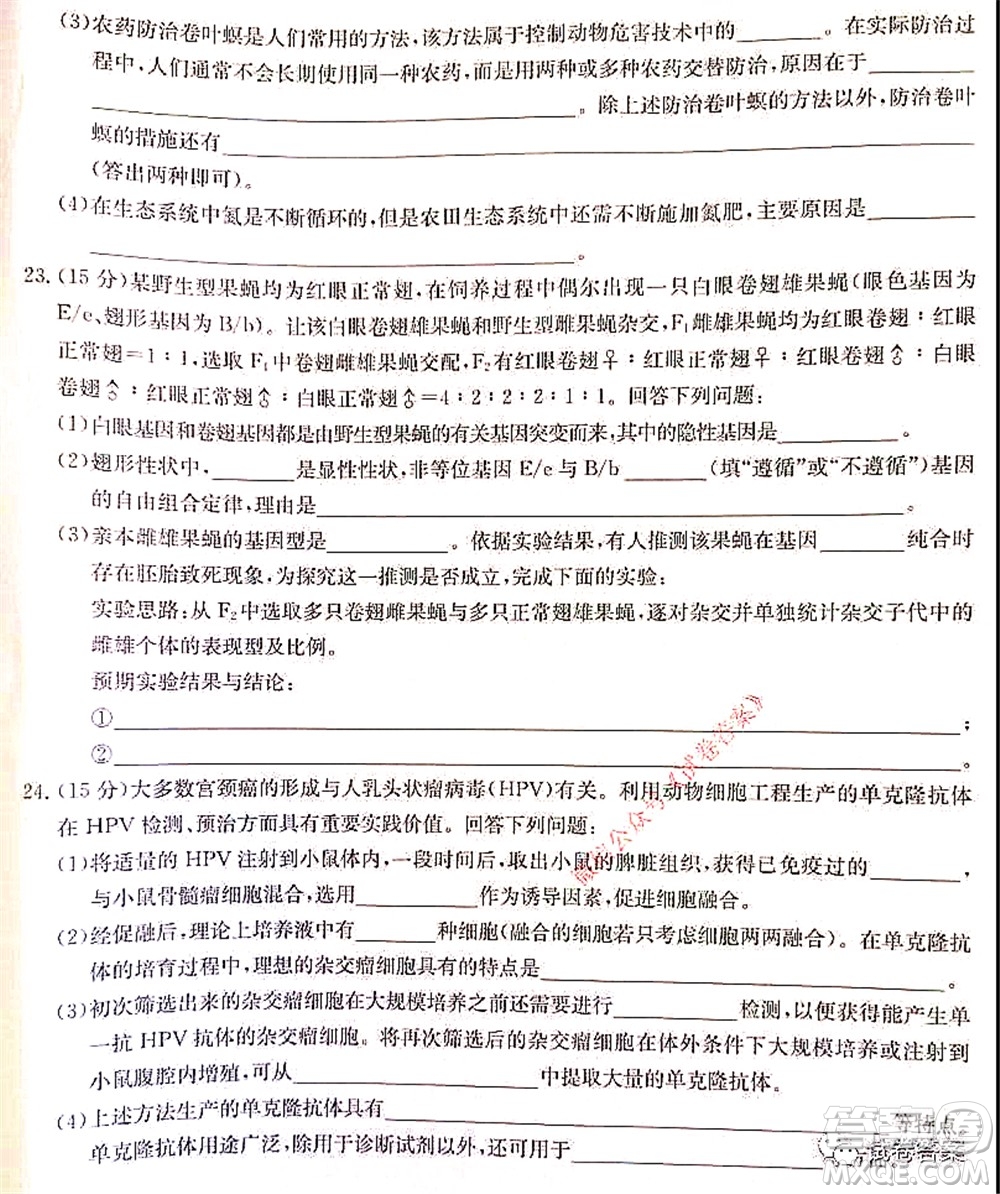 (3)农药防治卷叶螟是人们常用的方法,该方法属于控制动物危害技术中的________。在实际防治过
程中,人们通常不会长期使用同一种农药,而是用两种或多种农药交替防治,原因在于________
________。除上述防治卷叶螟的方法以外,防治卷叶
螟的措施还有________
(答出两种即可)。
(4)在生态系统中氮是不断循环的,但是农田生态系统中还需不断施加氮肥,主要原因是________
________。
23.(15 分)某野生型果蝇均为红眼正常翅,在饲养过程中偶尔出现一只白眼卷翅雄果蝇(眼色基因为
E/e、翅形基因为 B/b)。让该白眼卷翅雄果蝇和野生型雌果蝇杂交,F₁雌雄果蝇均为红眼卷翅∶红眼
正常翅=1∶1,选取 F₁中卷翅雌雄果蝇交配,F₂有红眼卷翅♀∶红眼正常翅♀∶红眼卷翅♂∶白眼
卷翅♂∶红眼正常翅♂∶白眼正常翅♂=4∶2∶2∶2∶1∶1。回答下列问题:
(1)白眼基因和卷翅基因都是由野生型果蝇的有关基因突变而来,其中的隐性基因是________。
(2)翅形性状中,________是显性性状,非等位基因 E/e 与 B/b________(填“遵循”或“不遵循”)基因
的自由组合定律,理由是________。
(3)亲本雌雄果蝇的基因型是________。依据实验结果,有人推测该果蝇在基因________纯合时
存在胚胎致死现象,为探究这一推测是否成立,完成下面的实验:
实验思路:从 F₂中选取多只卷翅雌果蝇与多只正常翅雄果蝇,逐对杂交并单独统计杂交子代中的
雌雄个体的表现型及比例。
预期实验结果与结论:
①________;
②________。
24.(15 分)大多数宫颈癌的形成与人乳头状瘤病毒(HPV)有关。利用动物细胞工程生产的单克隆抗体
在 HPV 检测、预治方面具有重要实践价值。回答下列问题:
(1)将适量的 HPV 注射到小鼠体内,一段时间后,取出小鼠的脾脏组织,获得已免疫过的________,
与小鼠骨髓瘤细胞混合,选用________作为诱导因素,促细胞融合。
(2)经促融后,理论上培养液中有________种细胞(融合的细胞若只考虑细胞两两融合)。在单克隆抗
体的培育过程中,理想的杂交瘤细胞具有的特点是________。
(3)初次筛选出来的杂交瘤细胞在大规模培养之前还需要进行________检测,以便获得能产生单
一抗 HPV 抗体的杂交瘤细胞。将再次筛选后的杂交瘤细胞在体外条件下大规模培养或注射到
小鼠腹腔内增殖,可从________中提取大量的单克隆抗体。
(4)上述方法生产的单克隆抗体具有________等特点。
单克隆抗体用途广泛,除用于诊断试剂以外,还可用于________。
微信公众号《试卷答案》
答案圈
试卷答案